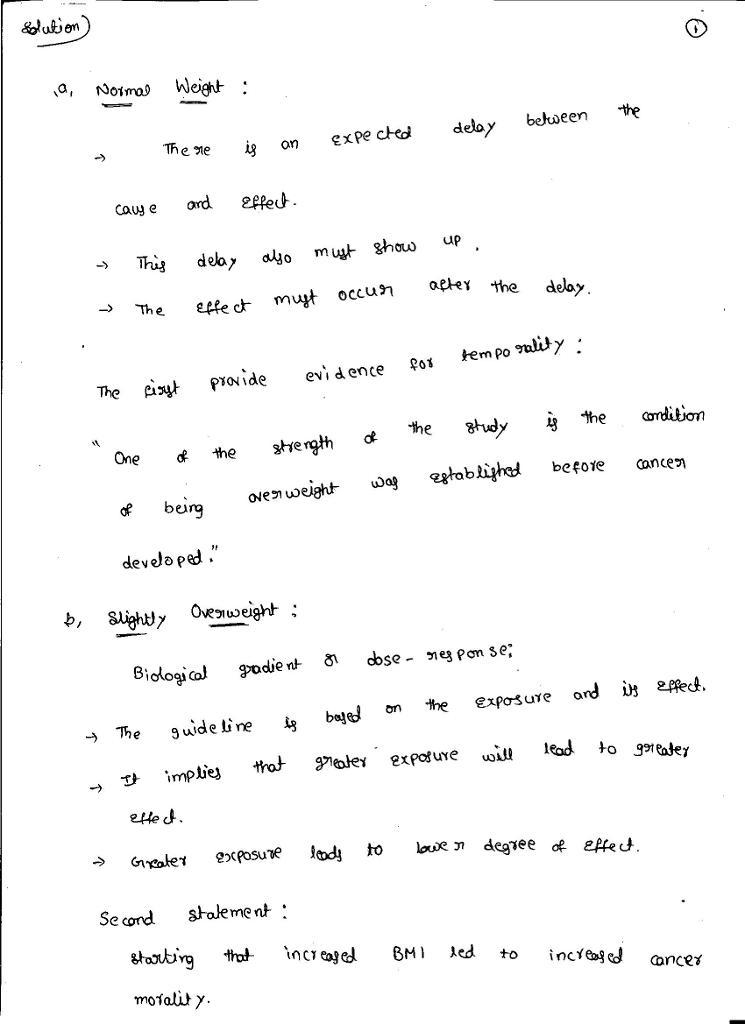 Solution)
1
a, Normal Weight :
→ There is an expected delay between the
cause and effect.
→ This delay also must show up.
→ The effect must occur after the delay.
The first provide evidence for temporality :
" One of the strength of the study is the condition
of being overweight was established before cancer
developed."
b, Slightly Overweight :
Biological gradient or dose - response;
→ The guideline is based on the exposure and its effect.
→ It implies that greater exposure will lead to greater
effect.
→ Greater exposure leads to lower degree of effect.
Second statement :
starting that increased BMI led to increased cancer
morality.